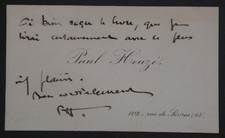 bien reçu le livre, que je
lirai certainement avec le plus
Paul Heuzé
vif plaisir.
Bien cordialement
PH
rue de Sèvres